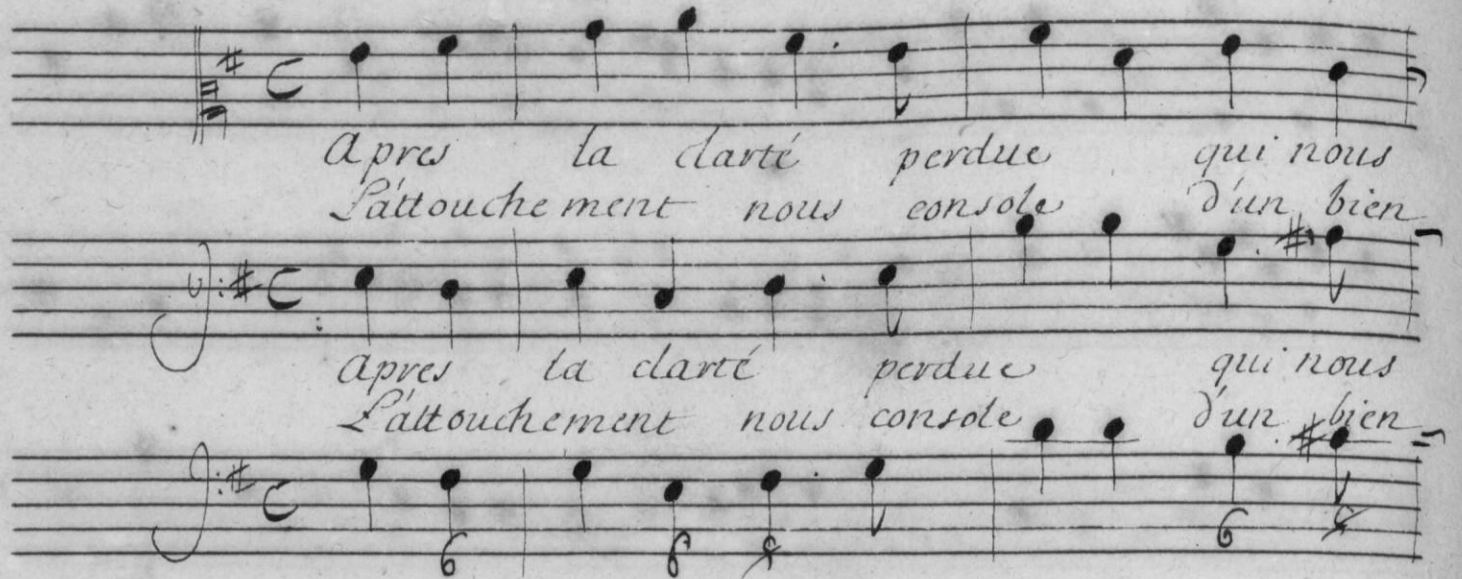 Apres la clarté perdue qui nous
L'attouchement nous console d'un bien
Apres la clarté perdue qui nous
L'attouchement nous console d'un bien
6 6 6